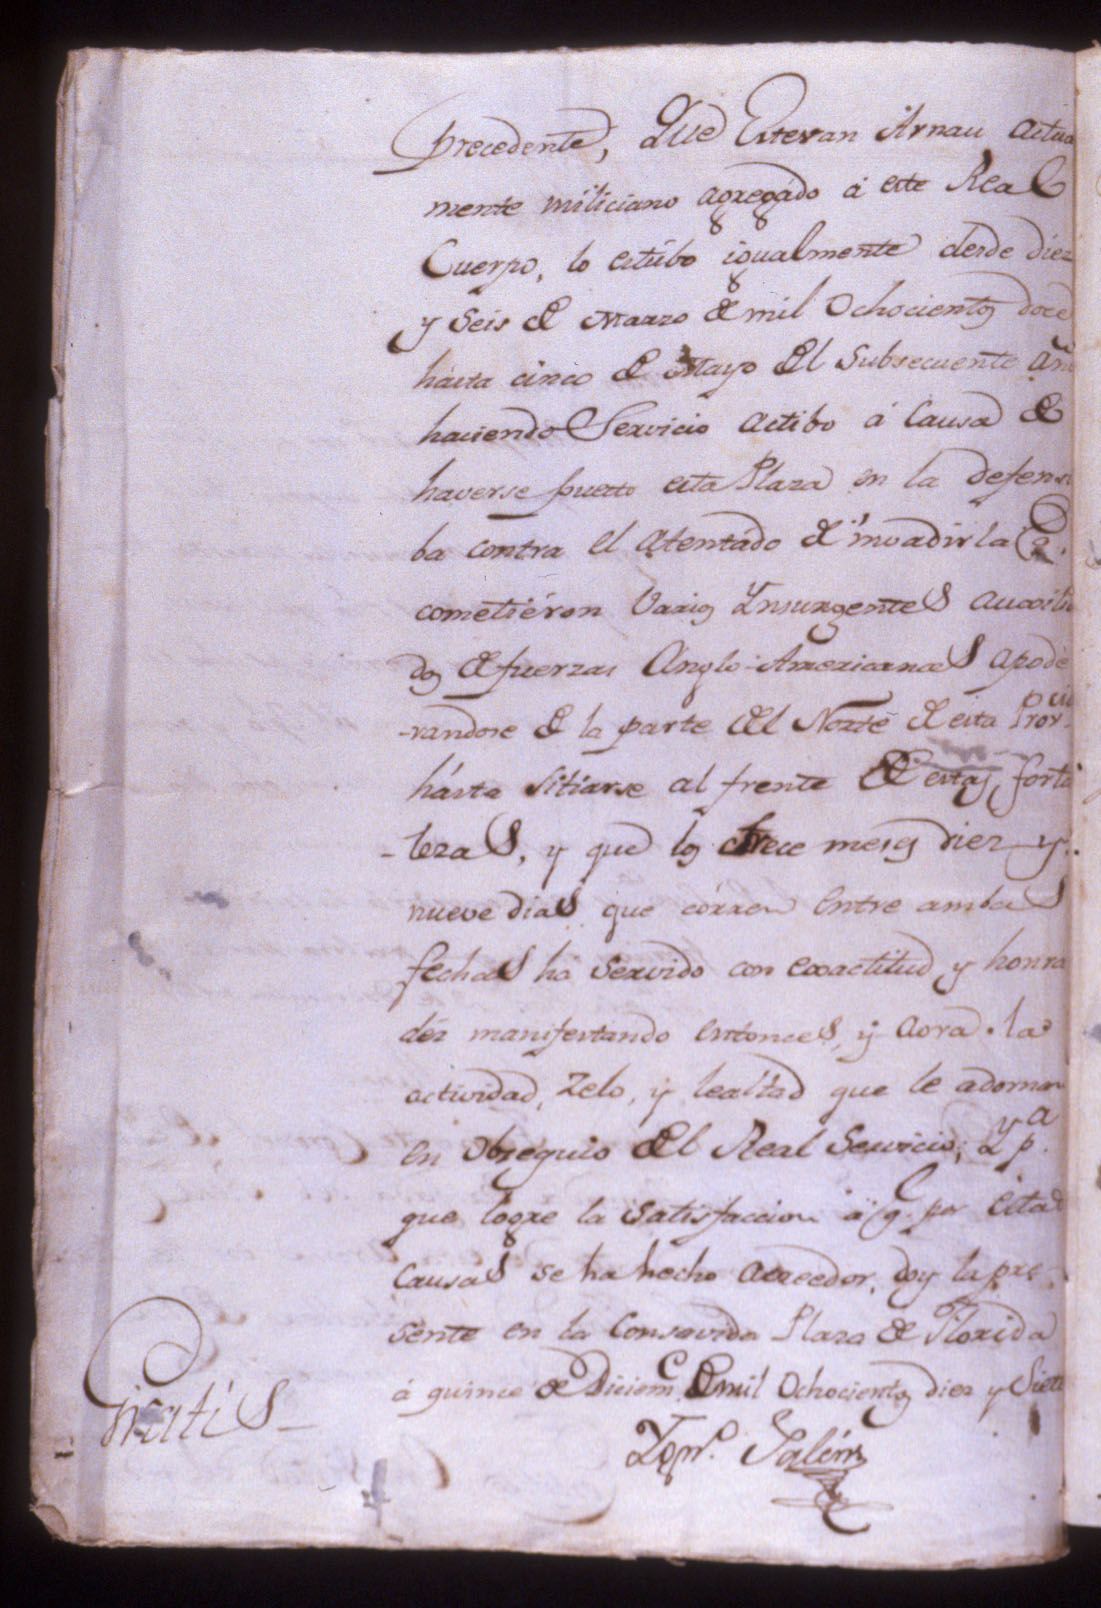 precedente, Que Estevan Arnau actua
mente miliciano agregado á este Real
Cuerpo, lo estúbo igualmente desde diez
y Seis de Marzo de mil Ochocientos doce
hasta cinco de Mayo del Subsecuente Año
haciendo Servicio activo á Causa de
haverse puesto esta Plaza en la defensi
ba contra el atentado de invadirla q.e
cometiéron Varios Ynsurgentes auxilia
dos de fuerzas Anglo-Americanas apode
-randose de la parte del Norte de esta Prov.cia
hásta sitiarse al frente de estas forta
-lezas, y que los trece meses diez y
nueve dias que córren entre ambas
fechas ha servido con exactitud y honra
déz manifestando entonces, y aora la
actividad, Zelo, y lealtad que le adornan
en Obsequio del Real Servicio; Y p.a
que logre la satisfaccion á q.e por estas
Causas se ha hecho acreedor, doy la pre-
sente en la Consavida Plaza de Florida
á quince de Diciem.e de mil Ochocientos diez y Siete
Gratis